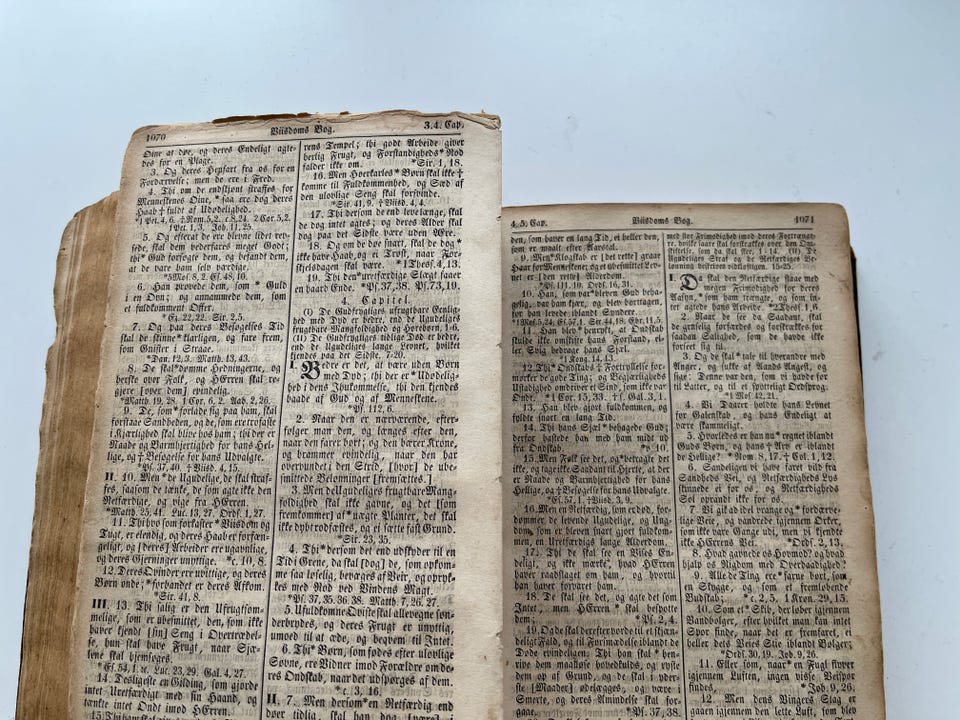 1070
Viisdoms Bog.
3. 4. Cap.
Øine at døe, og deres Endeligt agte-
des for en Plage.
3. Og deres Henfart fra os for en
Fordærvelse; men de ere i Fred.
4. Thi om de endskjønt straffes for
Menneskenes Øine, *saa ere dog deres
Haab † fuldt af Udødelighed.
*1 Pet. 4, 6. † Rom. 5, 2. c. 8, 24. 2 Cor. 5, 2.
1 Pet. 1, 3. Joh. 11, 25.
5. Og efterat de ere blevne lidet rev-
sede, skal dem vederfares meget Godt;
*thi Gud forsøgte dem, og befandt dem,
at de vare ham selv værdige.
*5 Mos. 8, 2. Es. 48, 10.
6. Han prøvede dem, som *Guld
i en Ovn; og annammede dem, som
et fuldkomment Offer.
*Es. 22, 22. Sir. 2, 5.
7. Og paa deres Besøgelses Tid
skal de *skinne klarligen, og fare frem,
som Gnister i Straae.
*Dan. 12, 3. Matth. 13, 43.
8. De skal *dømme Hedningerne, og
herske over Folk, og HErren skal re-
gjere [over dem] evindelig.
*Matth. 19, 28. 1 Cor. 6, 2. Aab. 2, 26.
9. De, som *forlade sig paa ham, skal
forstaae Sandheden, og de, som ere trofaste
i Kjærlighed skal blive hos ham; thi der er
Naade og Barmhjertighed for hans Hel-
lige, og † Besøgelse for hans Udvalgte.
*Ps. 37, 40. † Viisd. 4, 15.
II. 10. Men *de Ugudelige, de skal straf-
fes, saasom de tænke, de som agte ikke den
Retfærdige, og vige fra HErren.
*Matth. 25, 41. Luc. 13, 27. Ordſ. 1, 27.
11. Thi hvo som forkaster *Viisdom og
Tugt, er elendig, og deres Haab er forfæn-
geligt, og [deres] Arbeider ere ugavnlige,
og deres Gjerninger unyttige. *c. 10, 8.
12. Deres Qvinder ere uvittige, og deres
Børn onde; *forbandet er deres Afkom.
*Sir. 41, 8.
III. 13. Thi salig er den Ufrugtsom-
melige, som er ubesmittet, den, som ikke
haver kjendt [sin] Seng i Overtrædel-
se, hun skal have Frugt, naar Sjæ-
lene skal hjemsøges.
*Es. 54, 1. Luc. 23, 29. Gal. 4, 27.
14. Desligeste en Gilding, som gjorde
intet Uretfærdigt med sin Haand, og
tænkte intet Ondt imod HErren.
rens Tempel; thi godt Arbeide giver
herlig Frugt, og Forstandigheds *Rod
falder ikke om. *Sir. 1, 18.
16. Men Hoerkarles *Børn skal ikke †
komme til Fuldkommenhed, og Sæd af
den ulovlige Seng skal forsvinde.
*Sir. 41, 9. † Viisd. 4, 4.
17. Thi dersom de end leve længe, skal
de dog intet agtes; og deres Alder skal
dog paa det Sidste være uden Ære.
18. Og om de døe snart, skal de dog *
ikke have Haab, og ei Trøst, naar For-
skjelsdagen skal være. *1 Thes. 4, 13.
19. Thi den *uretfærdige Slægt faaer
en haard Ende. *Ps. 37, 38. Ps. 73, 19.
4. Capitel.
(I) De Gudfrygtiges ufrugtbare Eenlig-
hed med Dyd er bedre, end de Ugudeliges
frugtbare Mangfoldighed og Horebørn, 1-6.
(II) De Gudfrygtiges tidlige Død er bedre,
end de Ugudeliges lange Levnet, hvilket
kjendes paa det Sidste, 7-20.
I. Bedre er det, at være uden Børn
med Dyd; thi der er *Udødelig-
hed i dens Ihukommelse, thi den kjendes
baade af Gud og af Menneskene.
*Ps. 112, 6.
2. Naar den er nærværende, efter-
følger man den, og længes efter den,
naar den farer bort; og den bærer Krone,
og brammer evindelig, naar den har
overvundet i den Strid, [hvor] de ube-
smittede Belønninger [fremsættes.]
3. Men de Ugudeliges frugtbare Mang-
foldighed skal ikke gavne, og det [som
fremkommer] af *uægte Planter, det skal
ikke dybt rodfæstes, og ei sætte fast Grund.
*Sir. 23, 35.
4. Thi *dersom det end udskyder til en
Tid Grene, da skal [dog] de, som opkom-
me saa løselig, bevæges af Veir, og opryk-
kes med Rod ved Vindens Magt.
*Ps. 37, 35. 36. 38. Matth. 7, 26. 27.
5. Ufuldkomne Qviste skal allevegne søn-
derbrydes, og deres Frugt er unyttig,
umoed til at æde, og beqvem til Intet.
6. Thi *Børn, som fødes efter ulovlige
Søvne, ere Vidner imod Forældre om de-
res Ondskab, naar det udspørges af dem.
*c. 3, 16.
II. 7. Men dersom *en Retfærdig end
døer tidlig, skal han dog [være] i
4. 5. Cap.
Viisdoms Bog.
1071
den, som haver en lang Tid, ei heller den,
som er maalt efter Aarstal.
9. Men *Klogskab er [det rette] graae
Haar for Menneskene, og et ubesmittet Lev-
net er [den rette] Alderdom.
*Ps. 111, 10. Ordſ. 16, 31.
10. Han, som var *bleven Gud beha-
gelig, har ham kjær, og blev borttagen,
for han levede iblandt Syndere.
*1 Mos. 5, 24. Es. 57, 1. Sir. 44, 18. Ebr. 11, 5.
11. Han blev *henrykt, at Ondskab
skulde ikke omskifte hans Forstand, eller
Svig bedrage hans Sjæl.
*1 Kong. 14, 13.
12. Thi *Ondskabs † Fortryllelse for-
mørker de gode Ting; og Begjærligheds
Ustadighed omdriver ei Sind, som ikke var
Ondt. *1 Cor. 15, 33. † s. Gal. 3, 1.
13. Han blev gjort fuldkommen, og
fyldte snart en lang Tid.
14. Thi hans Sjæl *behagede Gud;
derfor hastede han med ham midt ud
fra Ondskab. *v. 10.
15. Men Folk see det, og *betragte det
ikke, og tage ikke Saadant til Hjerte, at der
er Naade og Barmhjertighed for hans
Hellige, og † Besøgelse for hans Udvalgte.
*Es. 57, 1. † Viisd. 3, 9.
16. Men en Retfærdig, som er død, for-
dømmer de levende Ugudelige, og Ung-
dom, som er bleven snart gjort fuldkom-
men, en Uretfærdigs lange Alderdom.
17. Thi de skal see en Viises En-
deligt, og ikke mærke, hvad HErren
haver raadslaget om ham, og hvortil
han haver forvaret ham.
18. De skal see det, og agte det som
Intet, men HErren *skal bespotte
dem; *Ps. 2, 4.
19. Og de skal derefter vorde til et skjæn-
deligt Fald, og til Forsmædelse iblandt de
Døde evindeligen; Thi han skal *ned-
rive dem maalløse hovedkulds, og ryste
dem op af Grunden, og de skal i yder-
ste [Maader] ødelægges, og være i
Smerte, og deres Amindelse skal for-
gaae. *Ps. 37, 38.
med stor Frimodighed imod deres Fortrængere,
(II) De
Ugudeliges Straf og de Retfærdiges Be-
lønning beskrives vidtløftigen. 15-25.
Da skal den Retfærdige staae med
megen Frimodighed for deres
Aasyn, *som ham trængte, og som in-
tet agtede hans Arbeide. *2 Thess. 1, 6.
2. Naar de see da Saadant, skal
de gruelig forfærdes og forskrækkes for
saadan Salighed, som de havde ikke
forseet sig til.
3. Og de skal *tale til hverandre med
Anger, og sukke af Aands Angest, og
sige: Denne var den, som vi havde for
til Latter, og til et spotteligt Ordsprog.
*1 Mos. 42, 21.
4. Vi Daarer holdte hans Levnet
for Galenskab, og hans Endeligt at
være skammeligt.
5. Hvorledes er han nu *regnet iblandt
Guds Børn, og hans † Arv er iblandt
de Hellige? *Rom. 8, 17. † Col. 1, 12.
6. Sandeligen vi have faret vild fra
Sandheds Vei, og Retfærdigheds Lys
skinnede ei for os, og Retfærdigheds
Sol oprandt ikke for os.
7. Vi gik ad idel vrange og *fordærve-
lige Veie, og vandrede igjennem Ørker,
som ikke vare Gange udi, men vi kjendte
ikke HErrens Vei. *Ordſ. 2, 13.
8. Hvad gavnede os Hovmod? og hvad
hjalp os Rigdom med Overdaadighed?
9. Alle de Ting ere *farne bort, som
en Skygge, og som et fremløbende
Budskab; *c. 2, 5. 1 Krøn. 29, 15.
10. Som et *Skib, der løber igjennem
Vandbølger, efter hvilket man kan intet
Spor finde, naar det er fremfaret, ei
heller dets Veies Stie iblandt Bølger;
*Ordſ. 30, 19. Job. 9, 26.
11. Eller som, naar *en Fugl flyver
igjennem Luften, ingen Veies Beviis
findes, *Job. 9, 26.
12. Men dens Vingers Slag er
gaaen igjennem den lette Luft, som blev